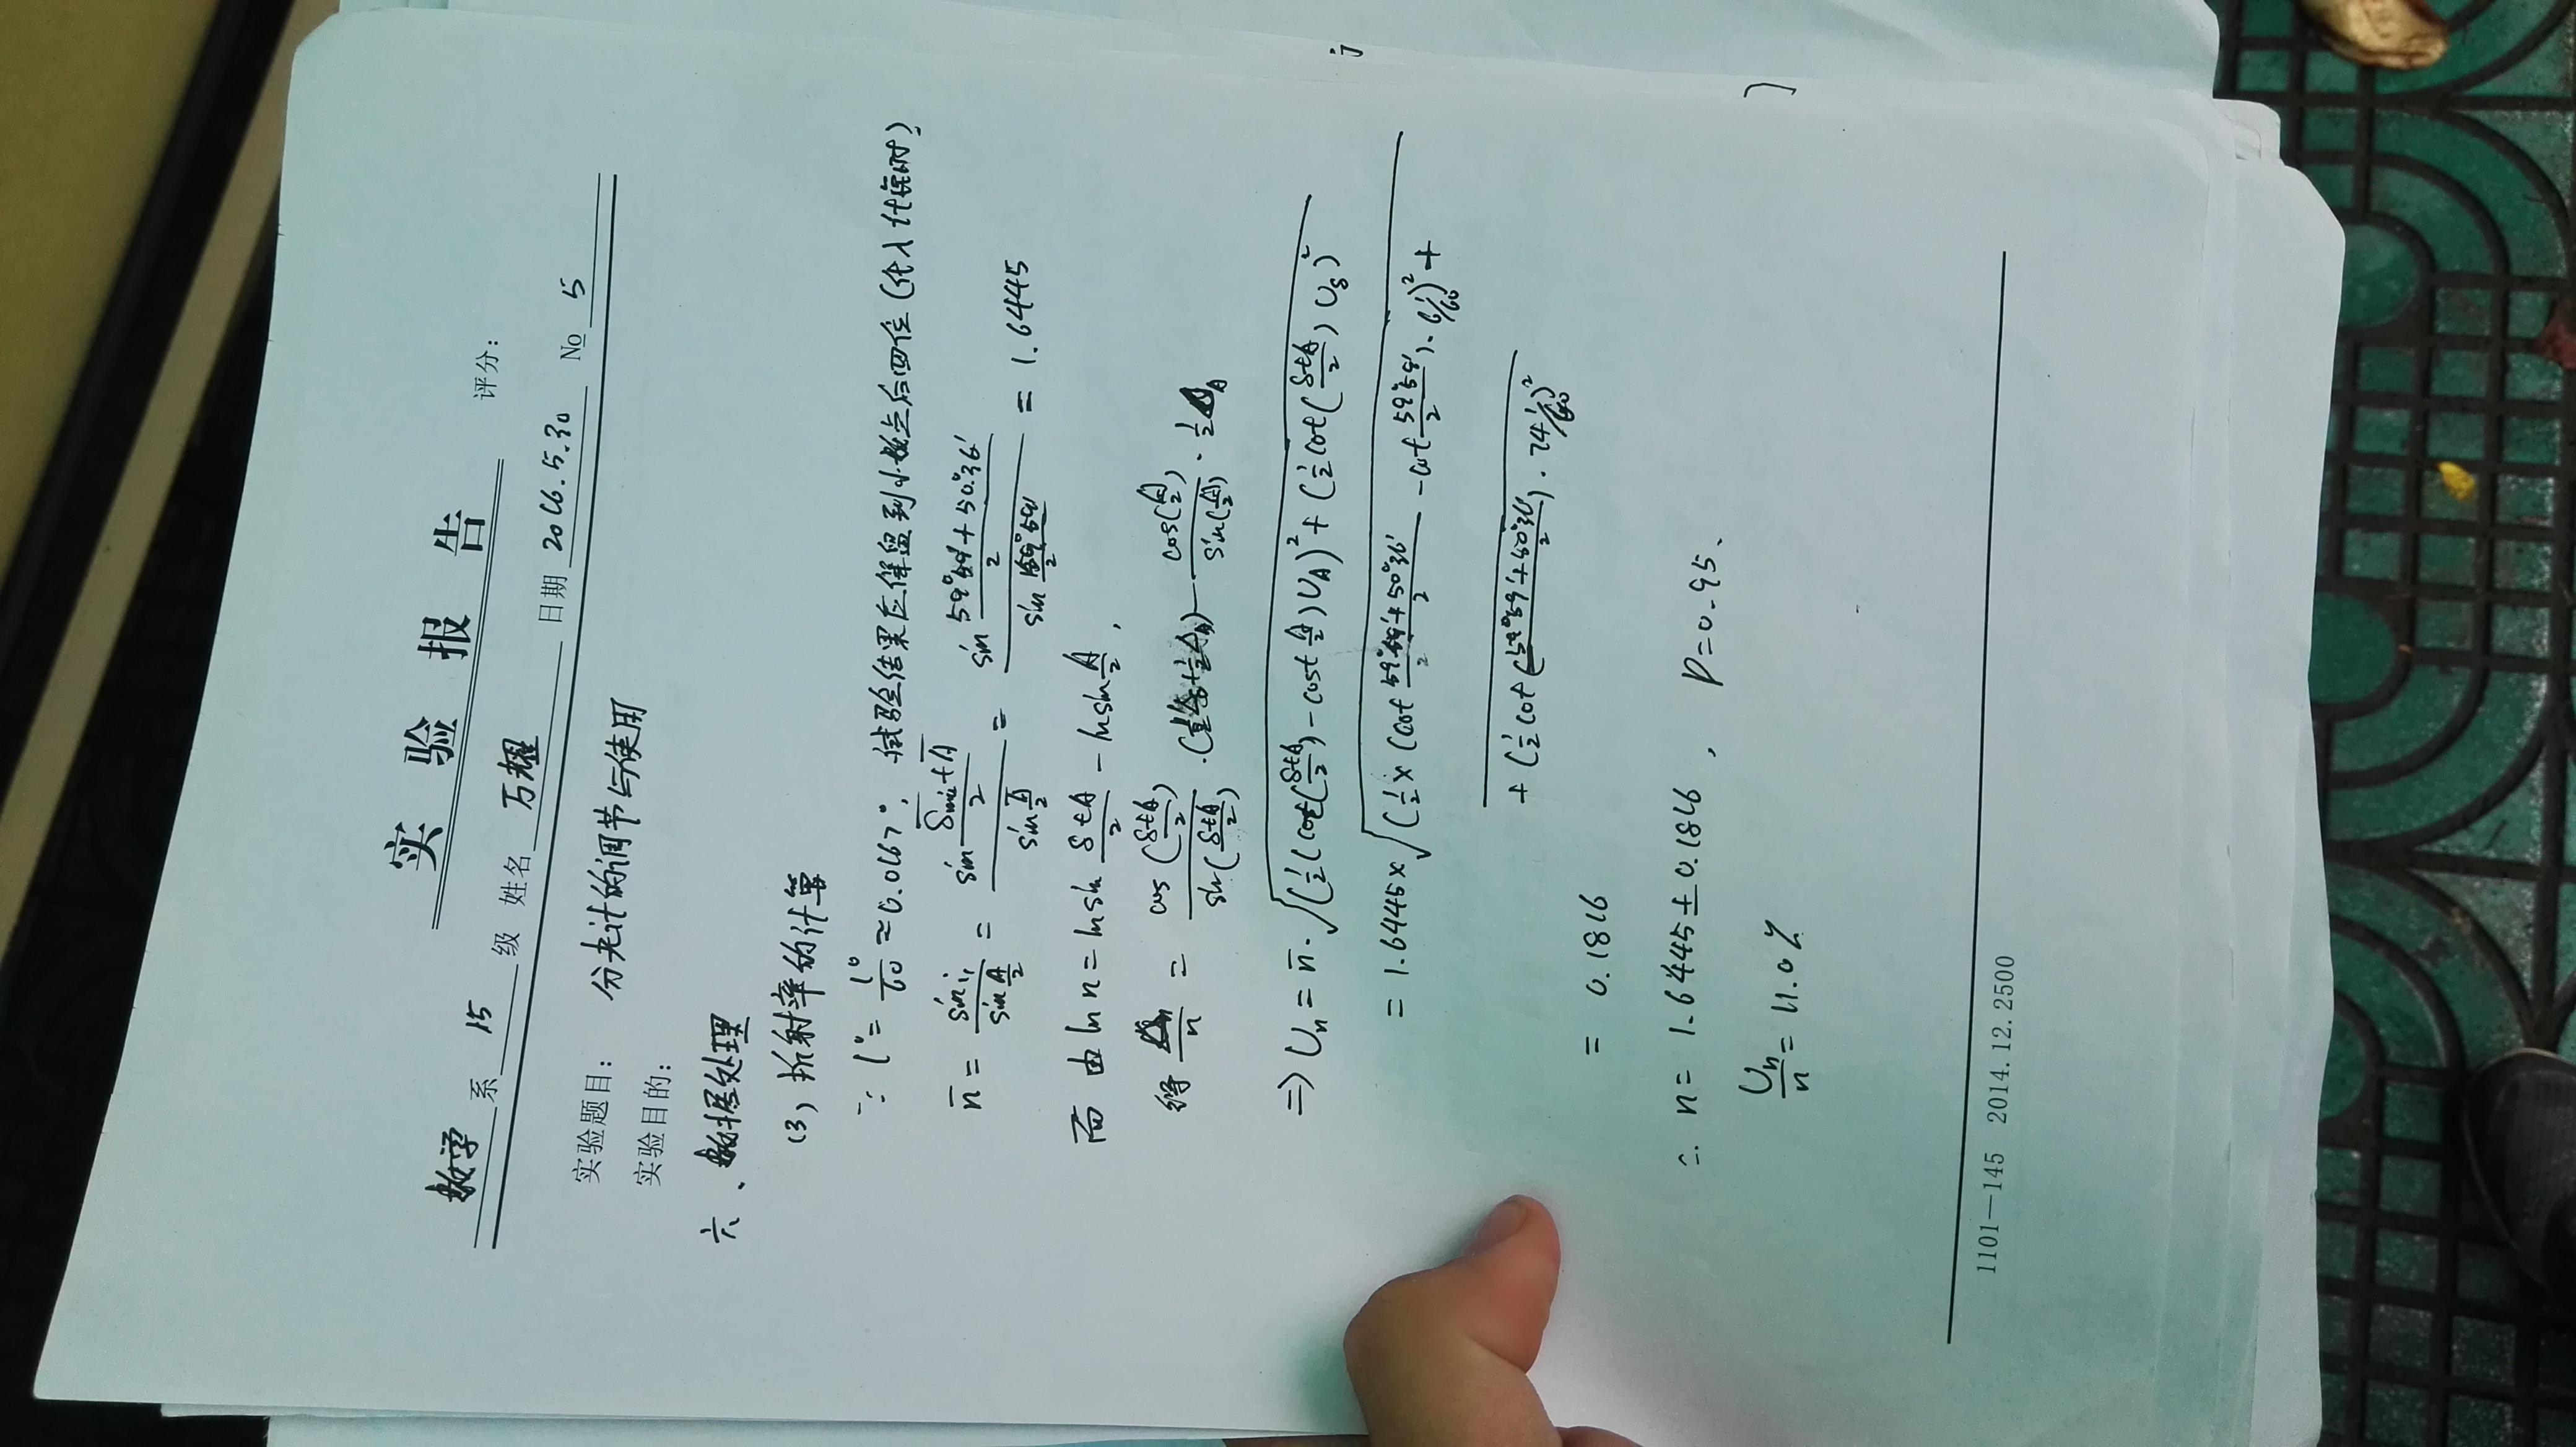 实 验 报 告
评分：
数学 系 15 级 姓名 万耀 日期 2016.5.30 No 5
实验题目： 分光计的调节与使用
实验目的：
六、数据处理
(3) 折射率的计算
∵ 1' = 1°/60 ≈ 0.0167°, 试验结果应保留到小数点后四位（代入计算时）
n̄ = sin i₁ / sin A/2 = sin (δ̄min+Ā)/2 / sin Ā/2 = sin (59°59'+50°36')/2 / sin 59°59'/2 = 1.6445
而 由 ln n = ln sin (δ+A)/2 − ln sin A/2,
得 Δn/n = cos((δ+A)/2) / sin((δ+A)/2) · (½Δδ+½ΔA) − cos(A/2) / sin(A/2) · ½ΔA
⇒ Uₙ = n̄ · √((½(cot((δ+A)/2) − cot A/2) U_A)² + (½cot((δ+A)/2) U_δ)²)
= 1.6445 × √((½ × (cot (59°59'+50°36')/2 − cot 59°59'/2) · 6'/60)² +
+ (½ cot((59°59'+50°36')/2) · 24'/60)²
= 0.1816
∴ n = 1.6445 ± 0.1816 , P = 0.95、
Uₙ/n = 11.0%
1101—145 2014.12.2500